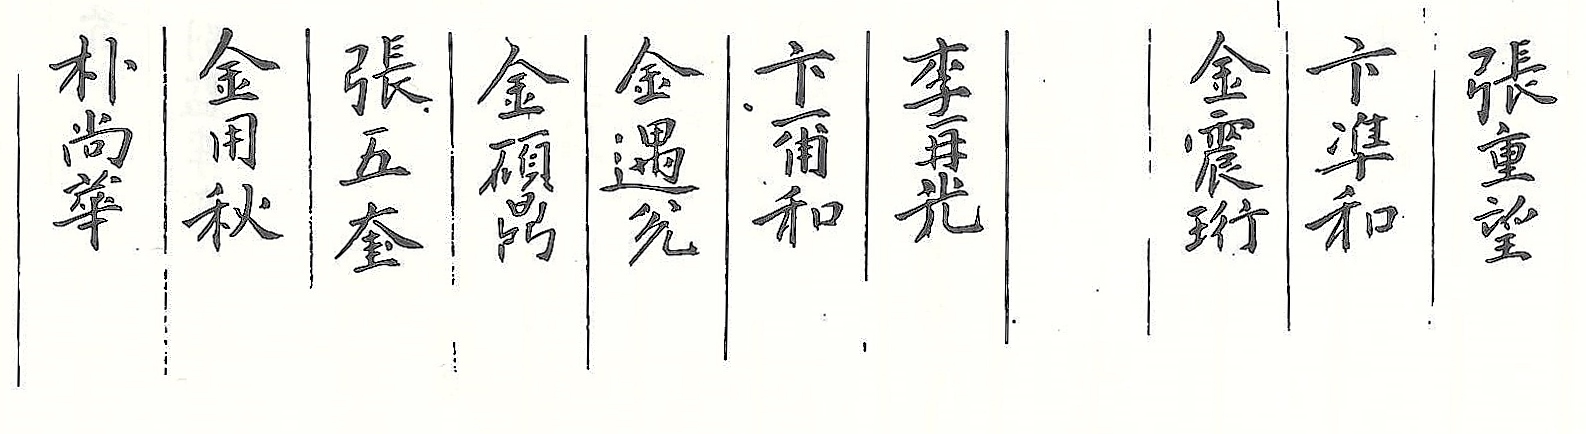 張重望
卞準和
金震珩
李再光
卞甫和
金遇兊
金碩鼎
張五奎
金用秋
朴尚華